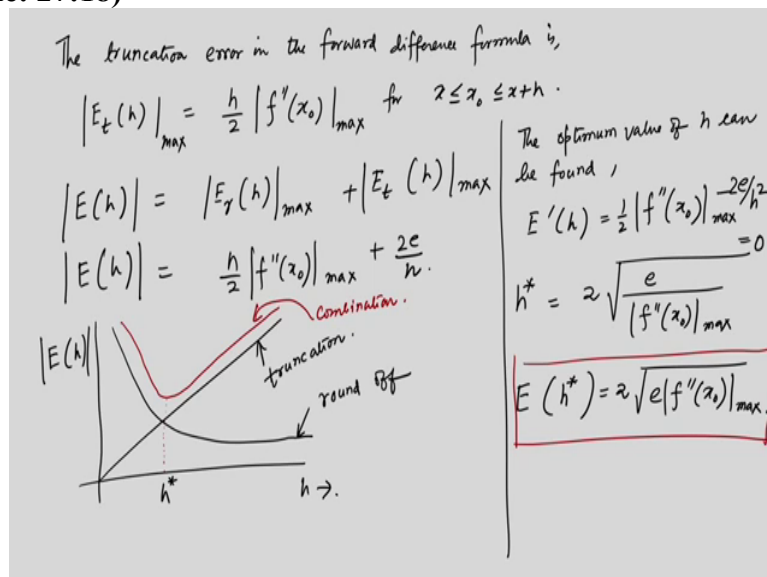 The truncation error in the forward difference formula is,
|E_t(h)|_max = h/2 |f''(x₀)|_max for x ≤ x₀ ≤ x+h.
|E(h)| = |E_r(h)|_max + |E_t(h)|_max
|E(h)| = h/2 |f''(x₀)|_max + 2e/h.
|E(h)|
combination.
truncation.
round off
h*
h →.
The optimum value of h can
be found,
E'(h) = 1/2 |f''(x₀)|_max - 2e/h²
= 0
h* = 2 √(e / |f''(x₀)|_max)
E(h*) = 2 √(e|f''(x₀)|_max.)